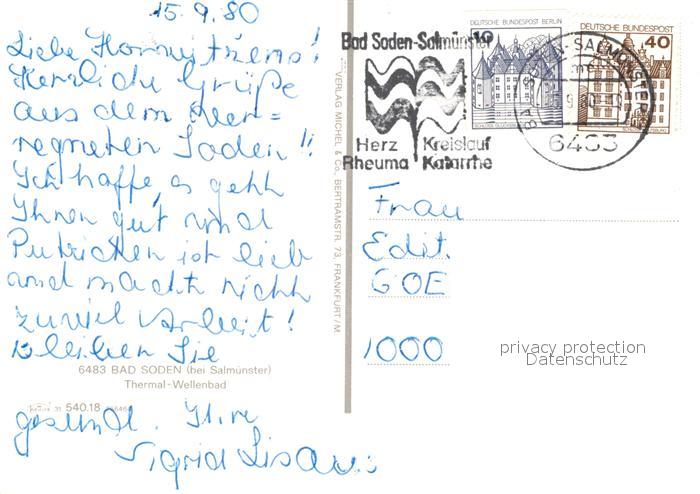 15.9.80
Liebe
Herzliche Grüße
aus dem ver=
regneten Soden!!
Ich hoffe, es geht
Ihnen gut und
ist lieb
und macht nicht
zuviel Arbeit!
Bleiben Sie
6483 BAD SODEN (bei Salmünster)
Thermal-Wellenbad
31 540.18
gesund. Ihre
Sigrid
VERLAG MICHEL & Co., BERTRAMSTR. 73, FRANKFURT/M.
Bad Soden-Salmünster
Herz Kreislauf
Rheuma Katarrhe
DEUTSCHE BUNDESPOST BERLIN
10
DEUTSCHE BUNDESPOST
40
6483
Frau
Edit.
GOE
1000
privacy protection
Datenschutz